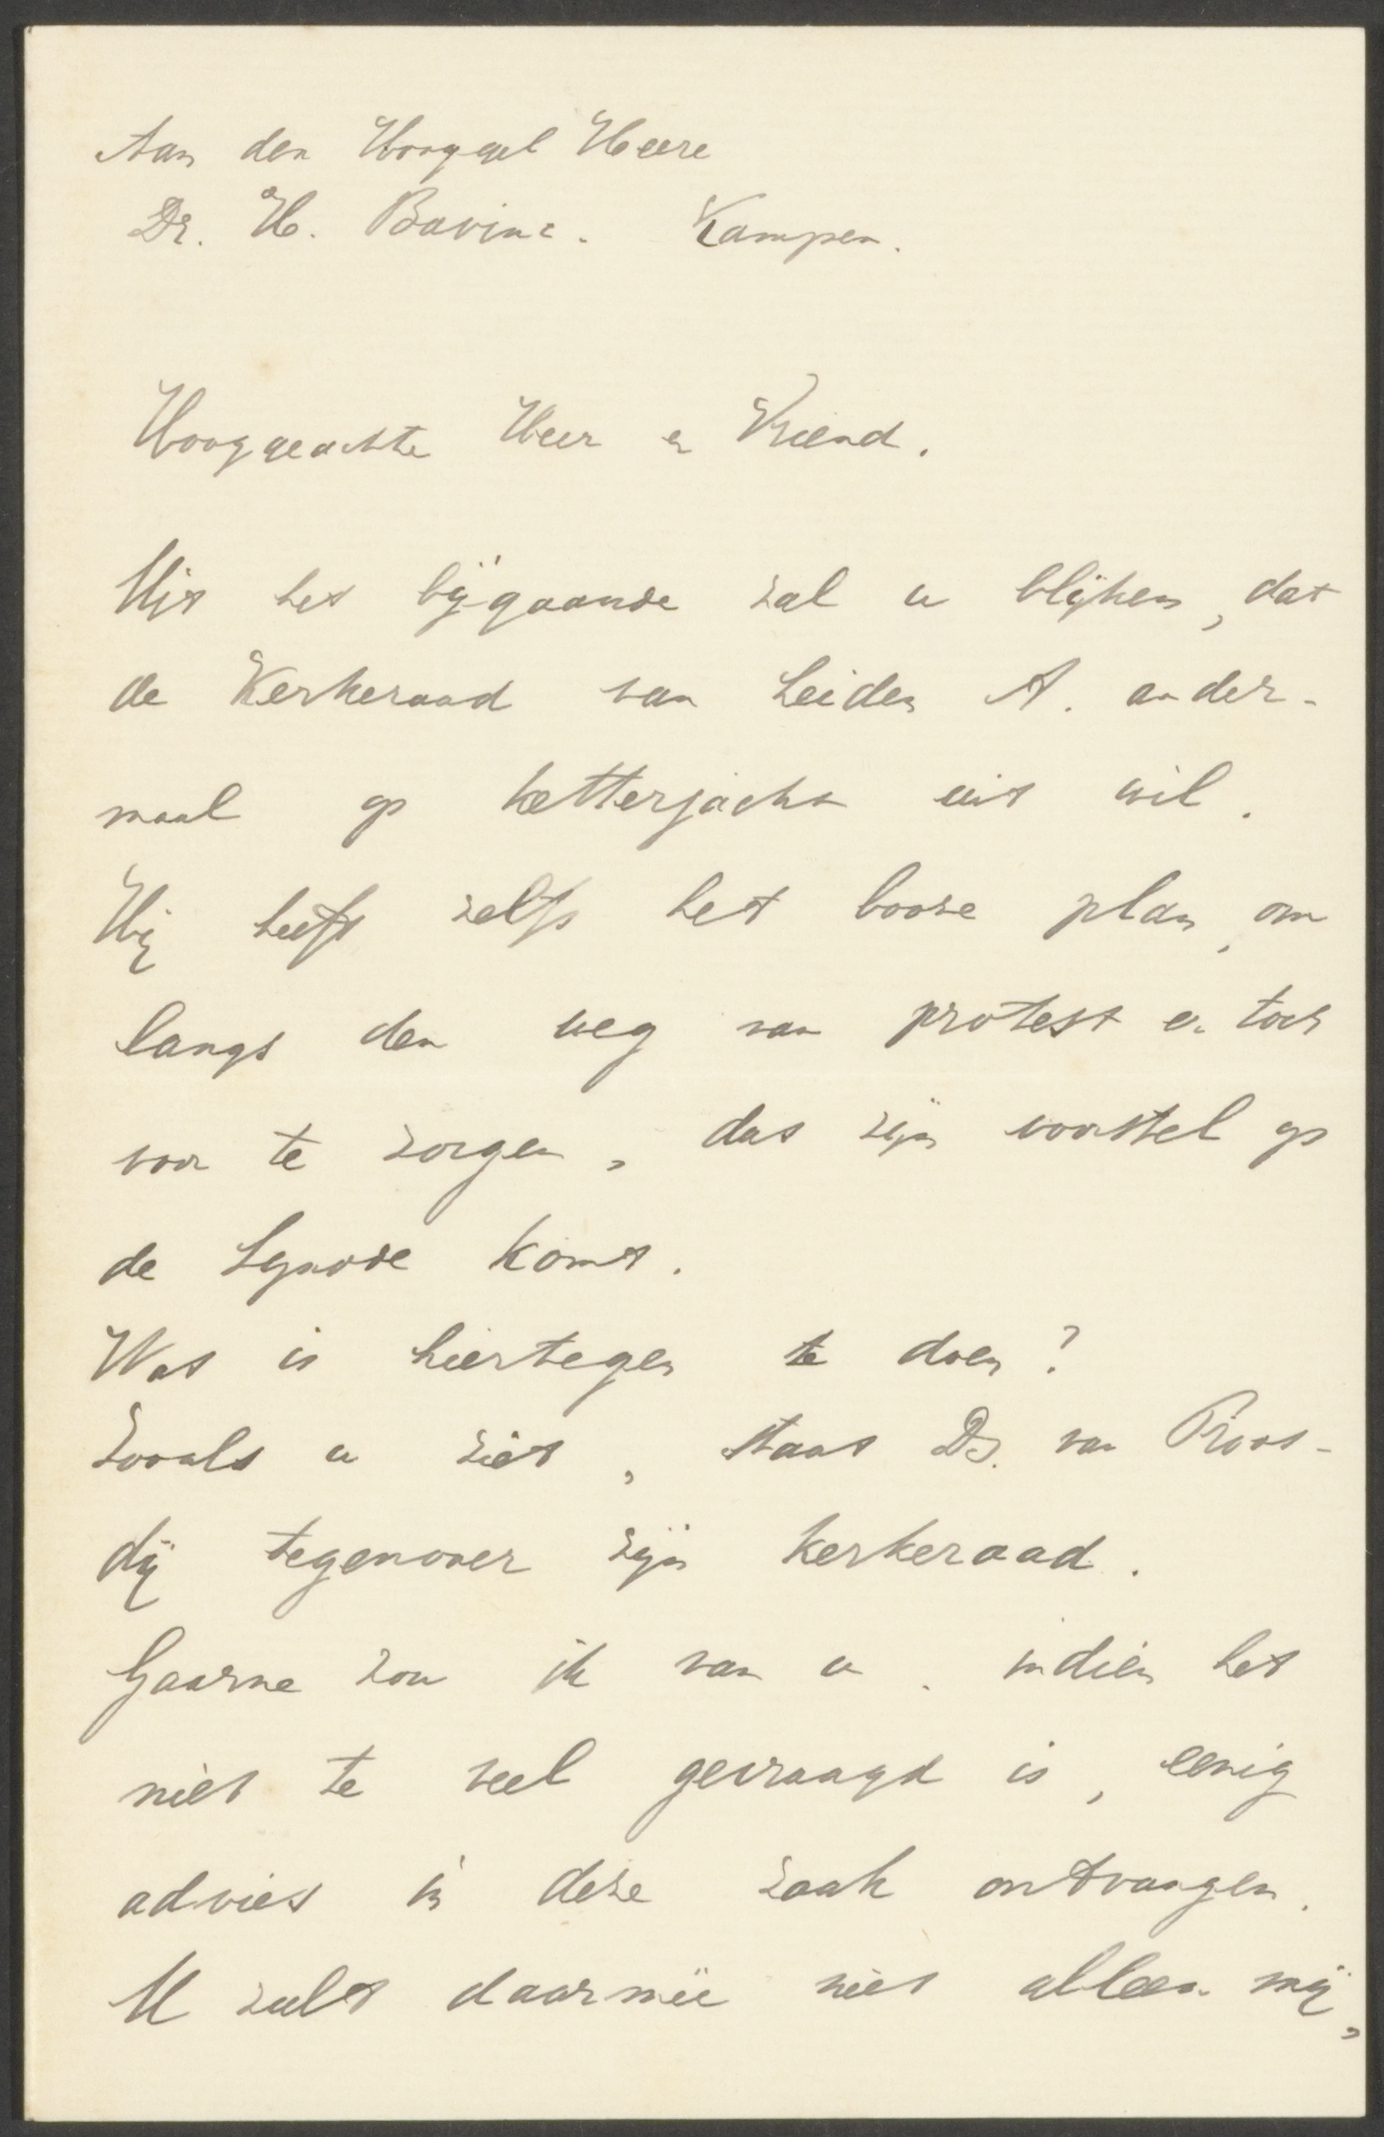 Aan den Hooggel Heere
Dr. H. Bavinc. Kampen.
Hooggeachte Heer en Vriend.
Uit het bijgaande zal u blijken, dat
de Kerkeraad van Leiden A. ander-
maal op ketterjacht uit wil.
Hij heeft zelfs het booze plan, om
langs den weg van protest er toch
voor te zorgen, dat zijn voorstel op
de Synode komt.
Wat is hiertegen te doen?
Zooals u ziet, staat Ds. van Proos-
dij tegenover zijn kerkeraad.
Gaarne zou ik van u, indien het
niet te veel gevraagd is, eenig
advies in deze zaak ontvangen.
U zult daarmee niet alleen mij,